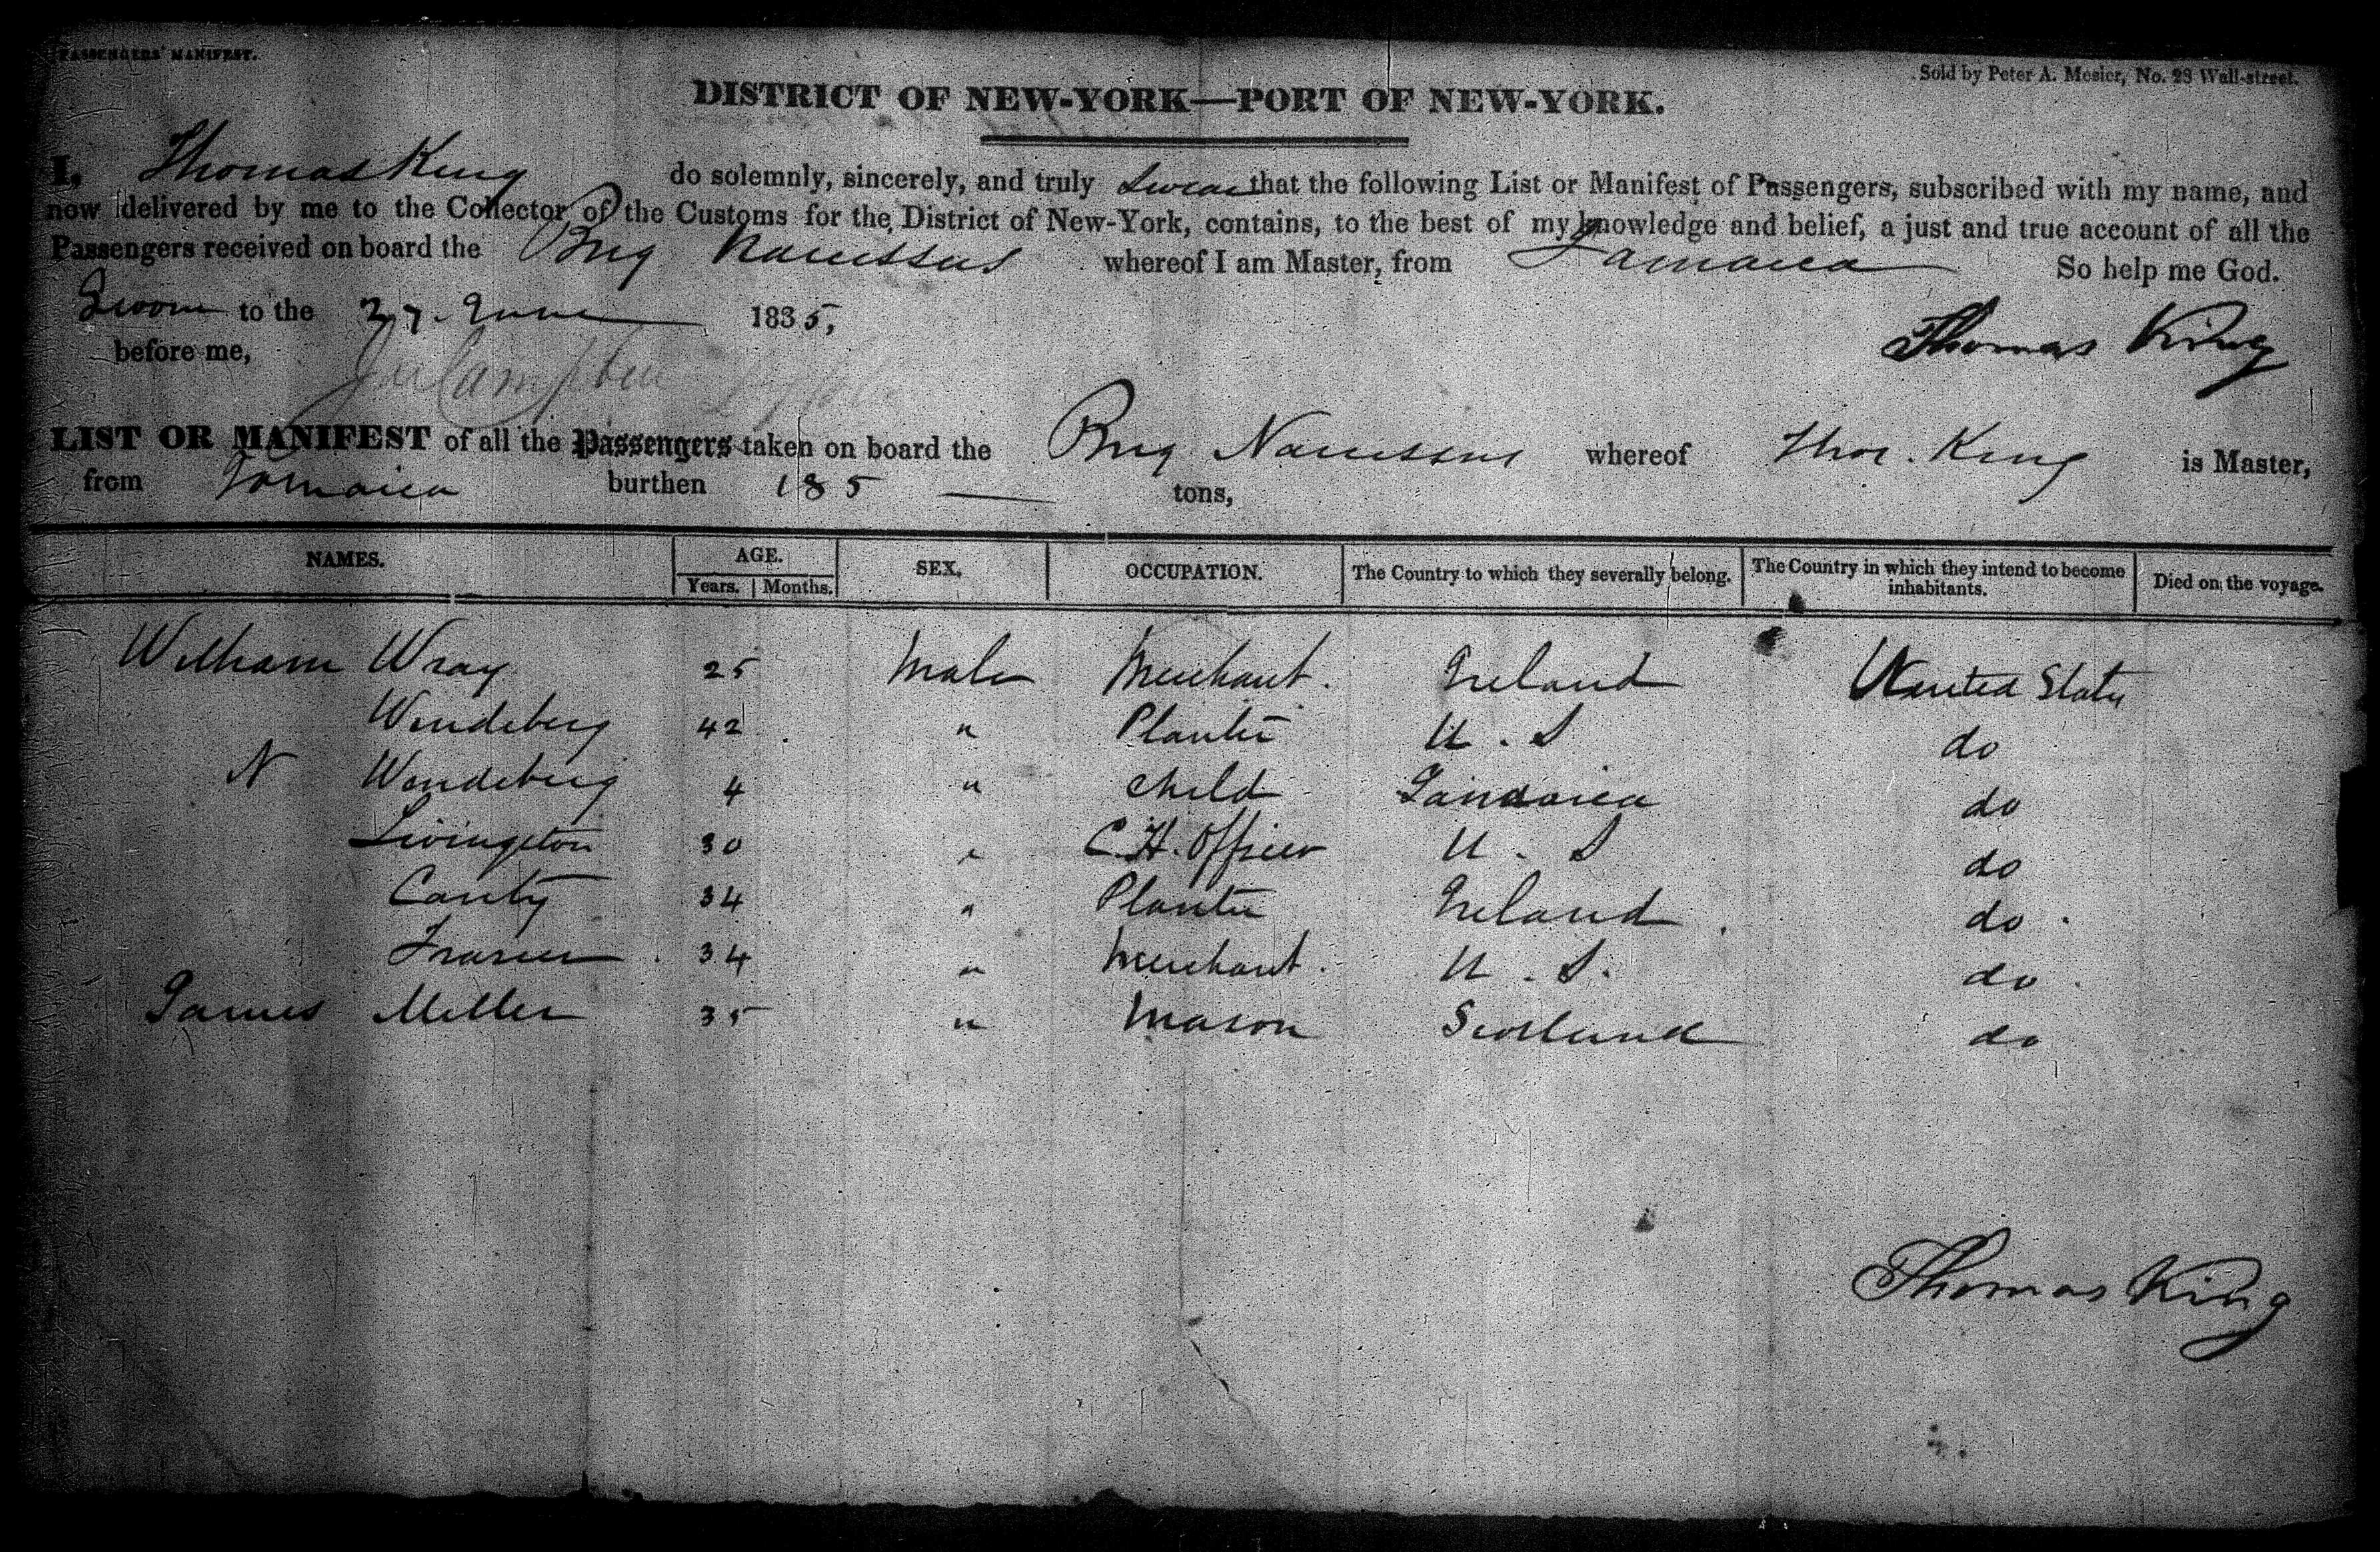 PASSENGERS' MANIFEST.
Sold by Peter A. Mesier, No. 28 Wall-street.
DISTRICT OF NEW-YORK—PORT OF NEW-YORK.
I, Thomas King do solemnly, sincerely, and truly Swear that the following List or Manifest of Passengers, subscribed with my name, and
now delivered by me to the Collector of the Customs for the District of New-York, contains, to the best of my knowledge and belief, a just and true account of all the
Passengers received on board the Brig Narcissus whereof I am Master, from Jamaica So help me God.
Sworn to the 27. June 1835,
before me,
Thomas King
LIST OR MANIFEST of all the Passengers taken on board the Brig Narcissus whereof Thos. King is Master,
from Jamaica burthen 185 tons,
NAMES. AGE. SEX, OCCUPATION. The Country to which they severally belong. The Country in which they intend to become inhabitants. Died on the voyage.
Years. Months.
William Wray 25 Male Merchant. Ireland United States
Wendeberg 42 " Planter U. S do
N Wendeberg 4 " child Jamaica do
Livingston 30 " C. H. Officer U. S do
Canty 34 " Planter Ireland do.
Frasier 34 " Merchant. U. S. do.
James Miller 35 " Mason Scotland do
Thomas King